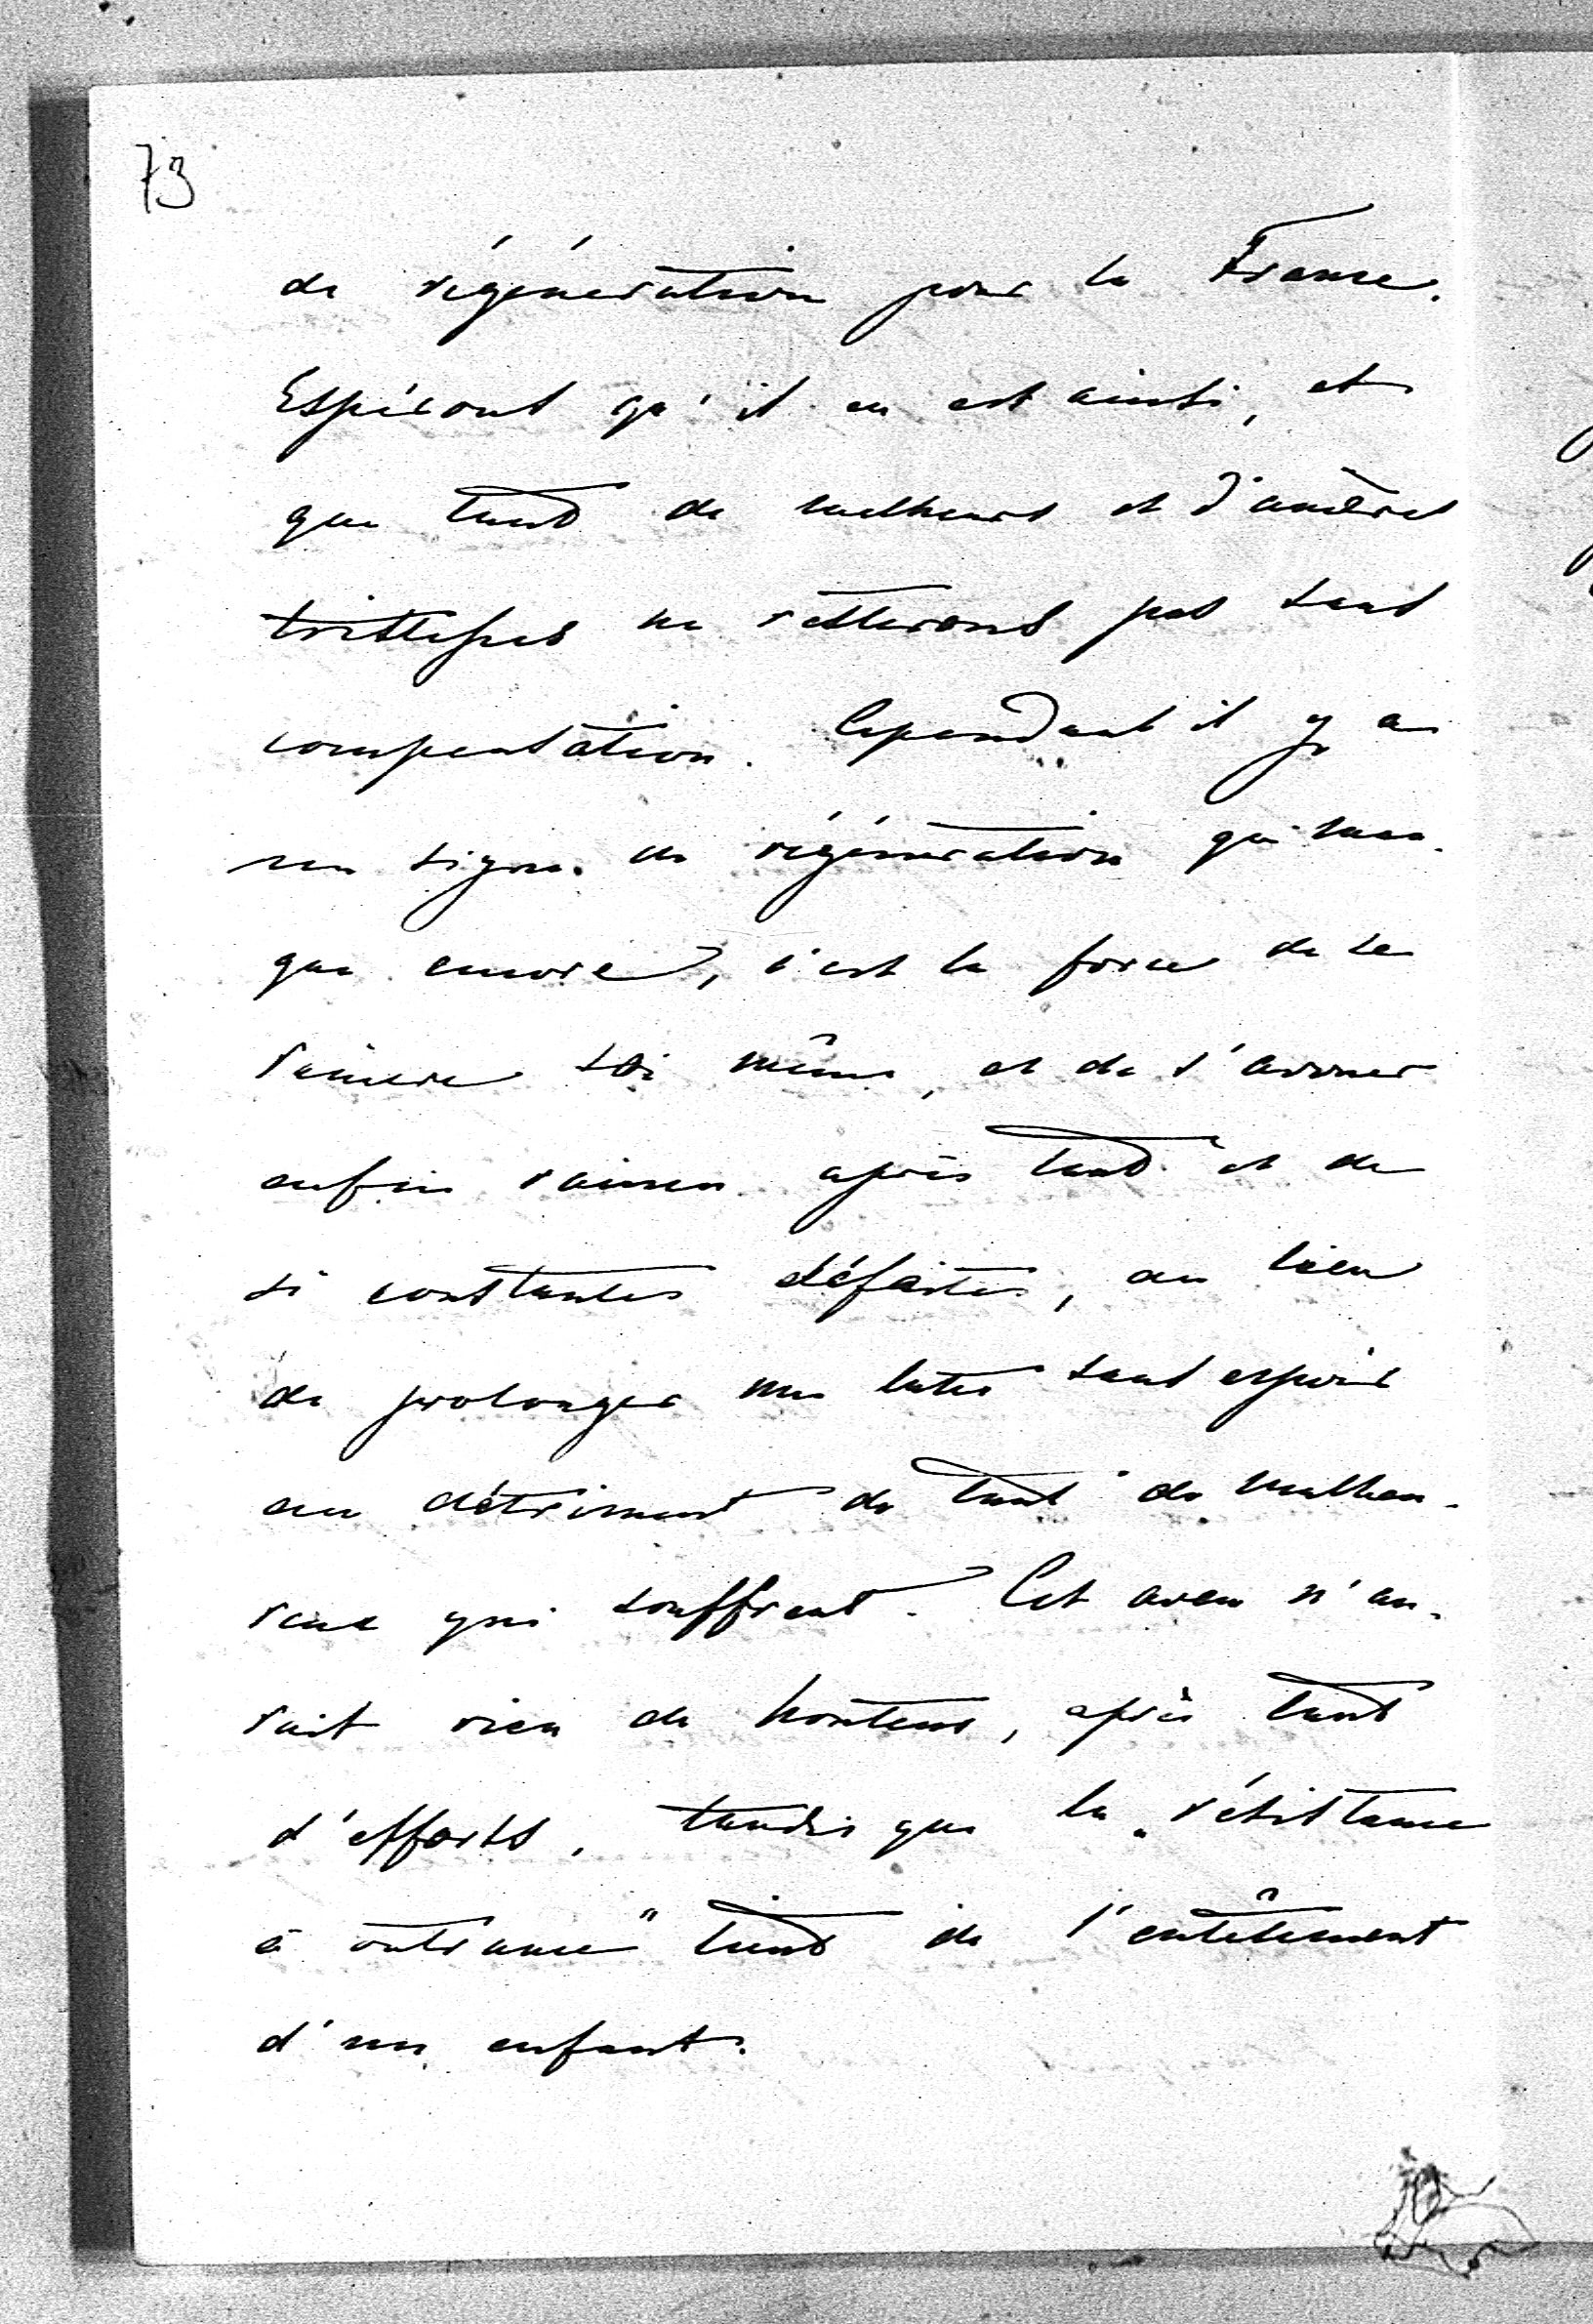 73
de régénération pour la France.
Espérons qu'il en est ainsi, et
que tant de malheurs et d'amères
tristesses ne resterons pas sans
compensation. Cependant il y a
un signe de régénération qui man-
que encore, c'est la force de se
vaincre soi même, et de s'avouer
enfin vaincu après tant et de
si constantes défaites, au lieu
de prolonger une lutte sans espoir
au détriment de tant de malheu-
reux qui souffrent. Cet aveu n'au-
rait rien de honteux, après tant
d'efforts, tandis que la „résistance
à outrance" tient de l'entêtement
d'un enfant.